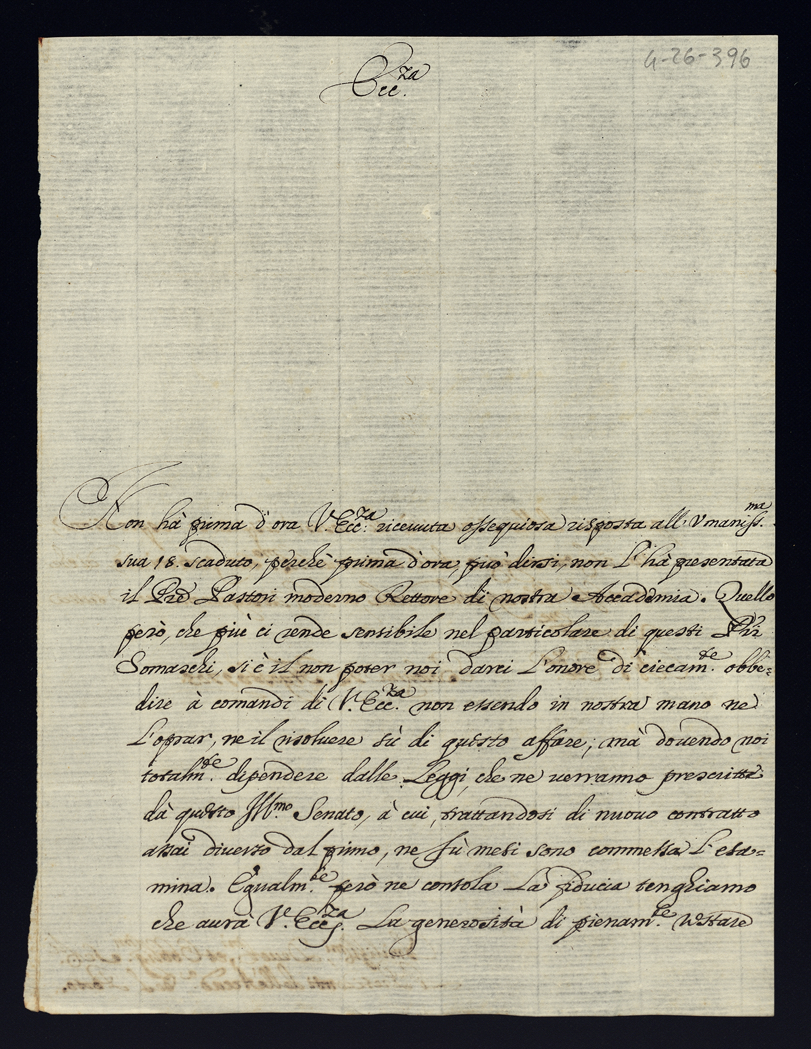 4-26-396
Ecc.za
Non há prima d'ora V.Ecc.za ricevuta ossequiosa risposta all'Vmaniss.ma
sua 18. scaduto, perchè prima d'ora, può dirsi, non l'há presentata
il Pre Pastori moderno Rettore di nostra Accademia. Quello
però, che più ci rende sensibile nel particolare di questi PPri
Somaschi, si è il non poter noi darci l'onore di ciecam.te obbe=
dire à comandi di V.Ecc.za non essendo in nostra mano ne
l'oprar, ne il risolvere sù di questo affare; mà dovendo noi
totalm.te dipendere dalle Leggi, che ne verranno prescritte
dà questo Ill.mo Senato, à cui, trattandosi di nuovo contratto
assai diverso dal primo, ne fù mesi sono commessa l'esa=
mina. Egualm.te però ne consola la fiducia tenghiamo
che aurà V.Ecc.za la generosità di pienam.te restare